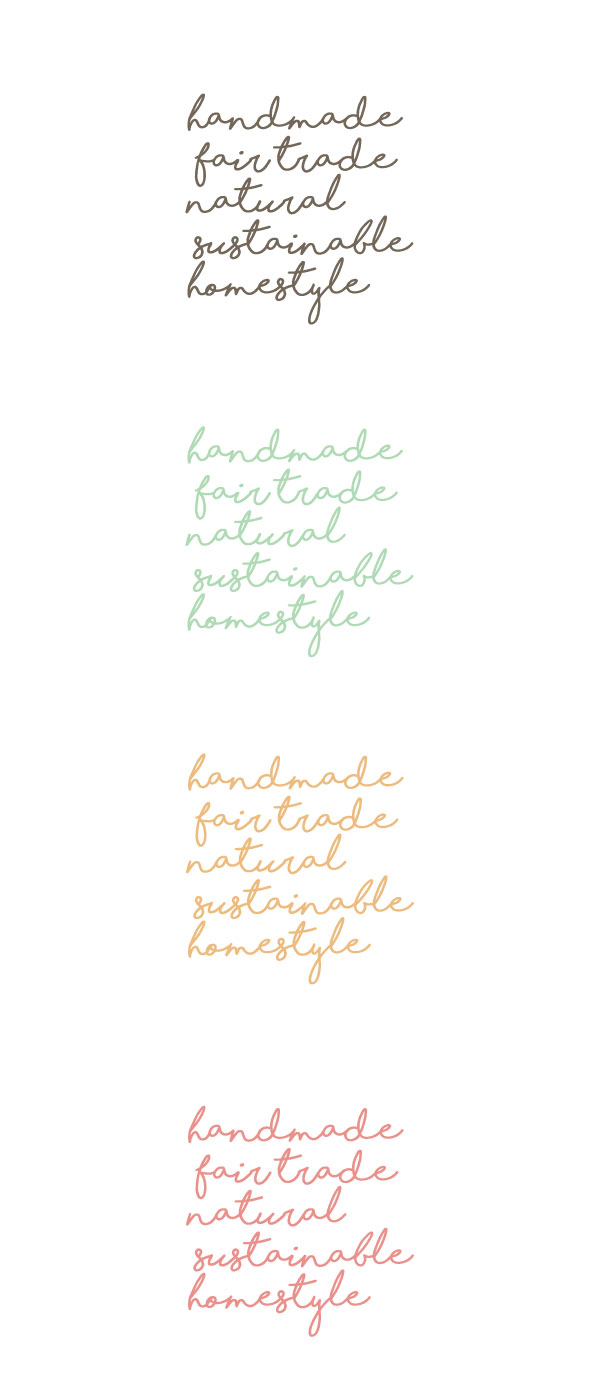 handmade
fair trade
natural
sustainable
homestyle
handmade
fair trade
natural
sustainable
homestyle
handmade
fair trade
natural
sustainable
homestyle
handmade
fair trade
natural
sustainable
homestyle